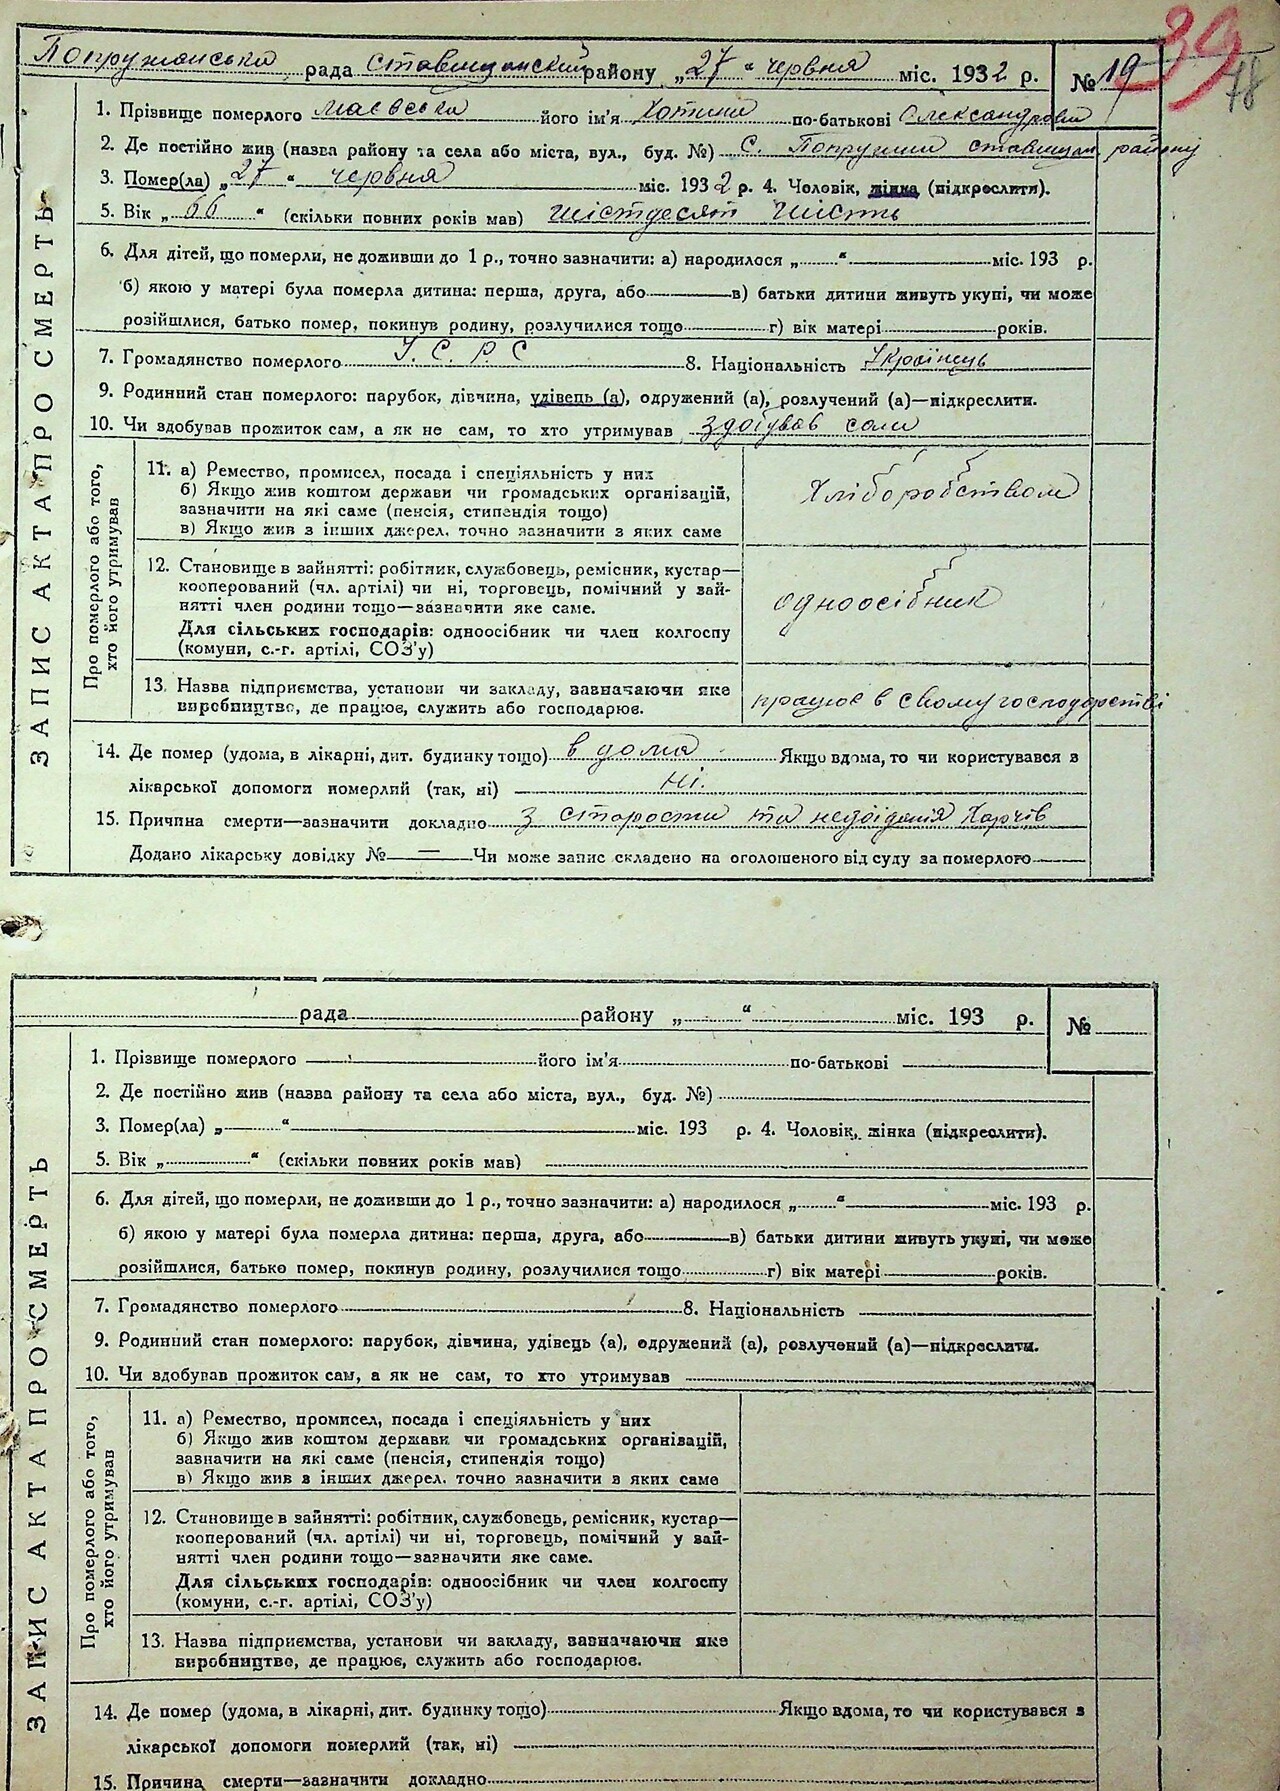 39
78
Попружанська рада Ставищанский району „27“ червня міс. 1932 р. № 19
1. Прізвище померлого Маєвска його ім'я Хотина по-батькові Олександровна
2. Де постійно жив (назва району та села або міста, вул., буд. №) С. Попружни ставищан. району
3. Помер(ла) „27“ червня міс. 1932 р. 4. Чоловік, жінка (підкреслити).
5. Вік „66“ (скільки повних років мав) шістдесят шість
6. Для дітей, що померли, не доживши до 1 р., точно зазначити: а) народилося „ “ міс. 193 р.
б) якою у матері була померла дитина: перша, друга, або в) батьки дитини живуть укупі, чи може
розійшлися, батько помер, покинув родину, розлучилися тощо г) вік матері років.
7. Громадянство померлого У. С. Р. С 8. Національність Українець
9. Родинний стан померлого: парубок, дівчина, удівець (а), одружений (а), розлучений (а)—підкреслити.
10. Чи здобував прожиток сам, а як не сам, то хто утримував здобував сами
ЗАПИС АКТА ПРО СМЕРТЬ
Про померлого або того,
хто його утримував
11. а) Ремество, промисел, посада і спеціяльність у них
б) Якщо жив коштом держави чи громадських організацій,
зазначити на які саме (пенсія, стипендія тощо)
в) Якщо жив з інших джерел, точно зазначити з яких саме
Хліборобством
12. Становище в зайнятті: робітник, службовець, ремісник, кустар—
кооперований (чл. артілі) чи ні, торговець, помічний у зай-
нятті член родини тощо—зазначити яке саме.
Для сільських господарів: одноосібник чи член колгоспу
(комуни, с.-г. артілі, СОЗ'у)
одноосібник
13. Назва підприємства, установи чи закладу, зазначаючи яке
виробництво, де працює, служить або господарює.
працює в свому господарстві
14. Де помер (удома, в лікарні, дит. будинку тощо) в дома Якщо вдома, то чи користувався з
лікарської допомоги померлий (так, ні) ні.
15. Причина смерти—зазначити докладно з старости та недоїдання Харчів
Додано лікарську довідку № — Чи може запис складено на оголошеного від суду за померлого
рада району „ “ міс. 193 р. №
1. Прізвище померлого його ім'я по-батькові
2. Де постійно жив (назва району та села або міста, вул., буд. №)
3. Помер(ла) „ “ міс. 193 р. 4. Чоловік, жінка (підкреслити).
5. Вік „ “ (скільки повних років мав)
6. Для дітей, що померли, не доживши до 1 р., точно зазначити: а) народилося „ “ міс. 193 р.
б) якою у матері була померла дитина: перша, друга, або в) батьки дитини живуть укупі, чи може
розійшлися, батько помер, покинув родину, розлучилися тощо г) вік матері років.
7. Громадянство померлого 8. Національність
9. Родинний стан померлого: парубок, дівчина, удівець (а), одружений (а), розлучений (а)—підкреслити.
10. Чи здобував прожиток сам, а як не сам, то хто утримував
ЗАПИС АКТА ПРО СМЕРТЬ
Про померлого або того,
хто його утримував
11. а) Ремество, промисел, посада і спеціяльність у них
б) Якщо жив коштом держави чи громадських організацій,
зазначити на які саме (пенсія, стипендія тощо)
в) Якщо жив з інших джерел, точно зазначити з яких саме
12. Становище в зайнятті: робітник, службовець, ремісник, кустар—
кооперований (чл. артілі) чи ні, торговець, помічний у зай-
нятті член родини тощо—зазначити яке саме.
Для сільських господарів: одноосібник чи член колгоспу
(комуни, с.-г. артілі, СОЗ'у)
13. Назва підприємства, установи чи закладу, зазначаючи яке
виробництво, де працює, служить або господарює.
14. Де помер (удома, в лікарні, дит. будинку тощо) Якщо вдома, то чи користувався з
лікарської допомоги померлий (так, ні)
15. Причина смерти—зазначити докладно